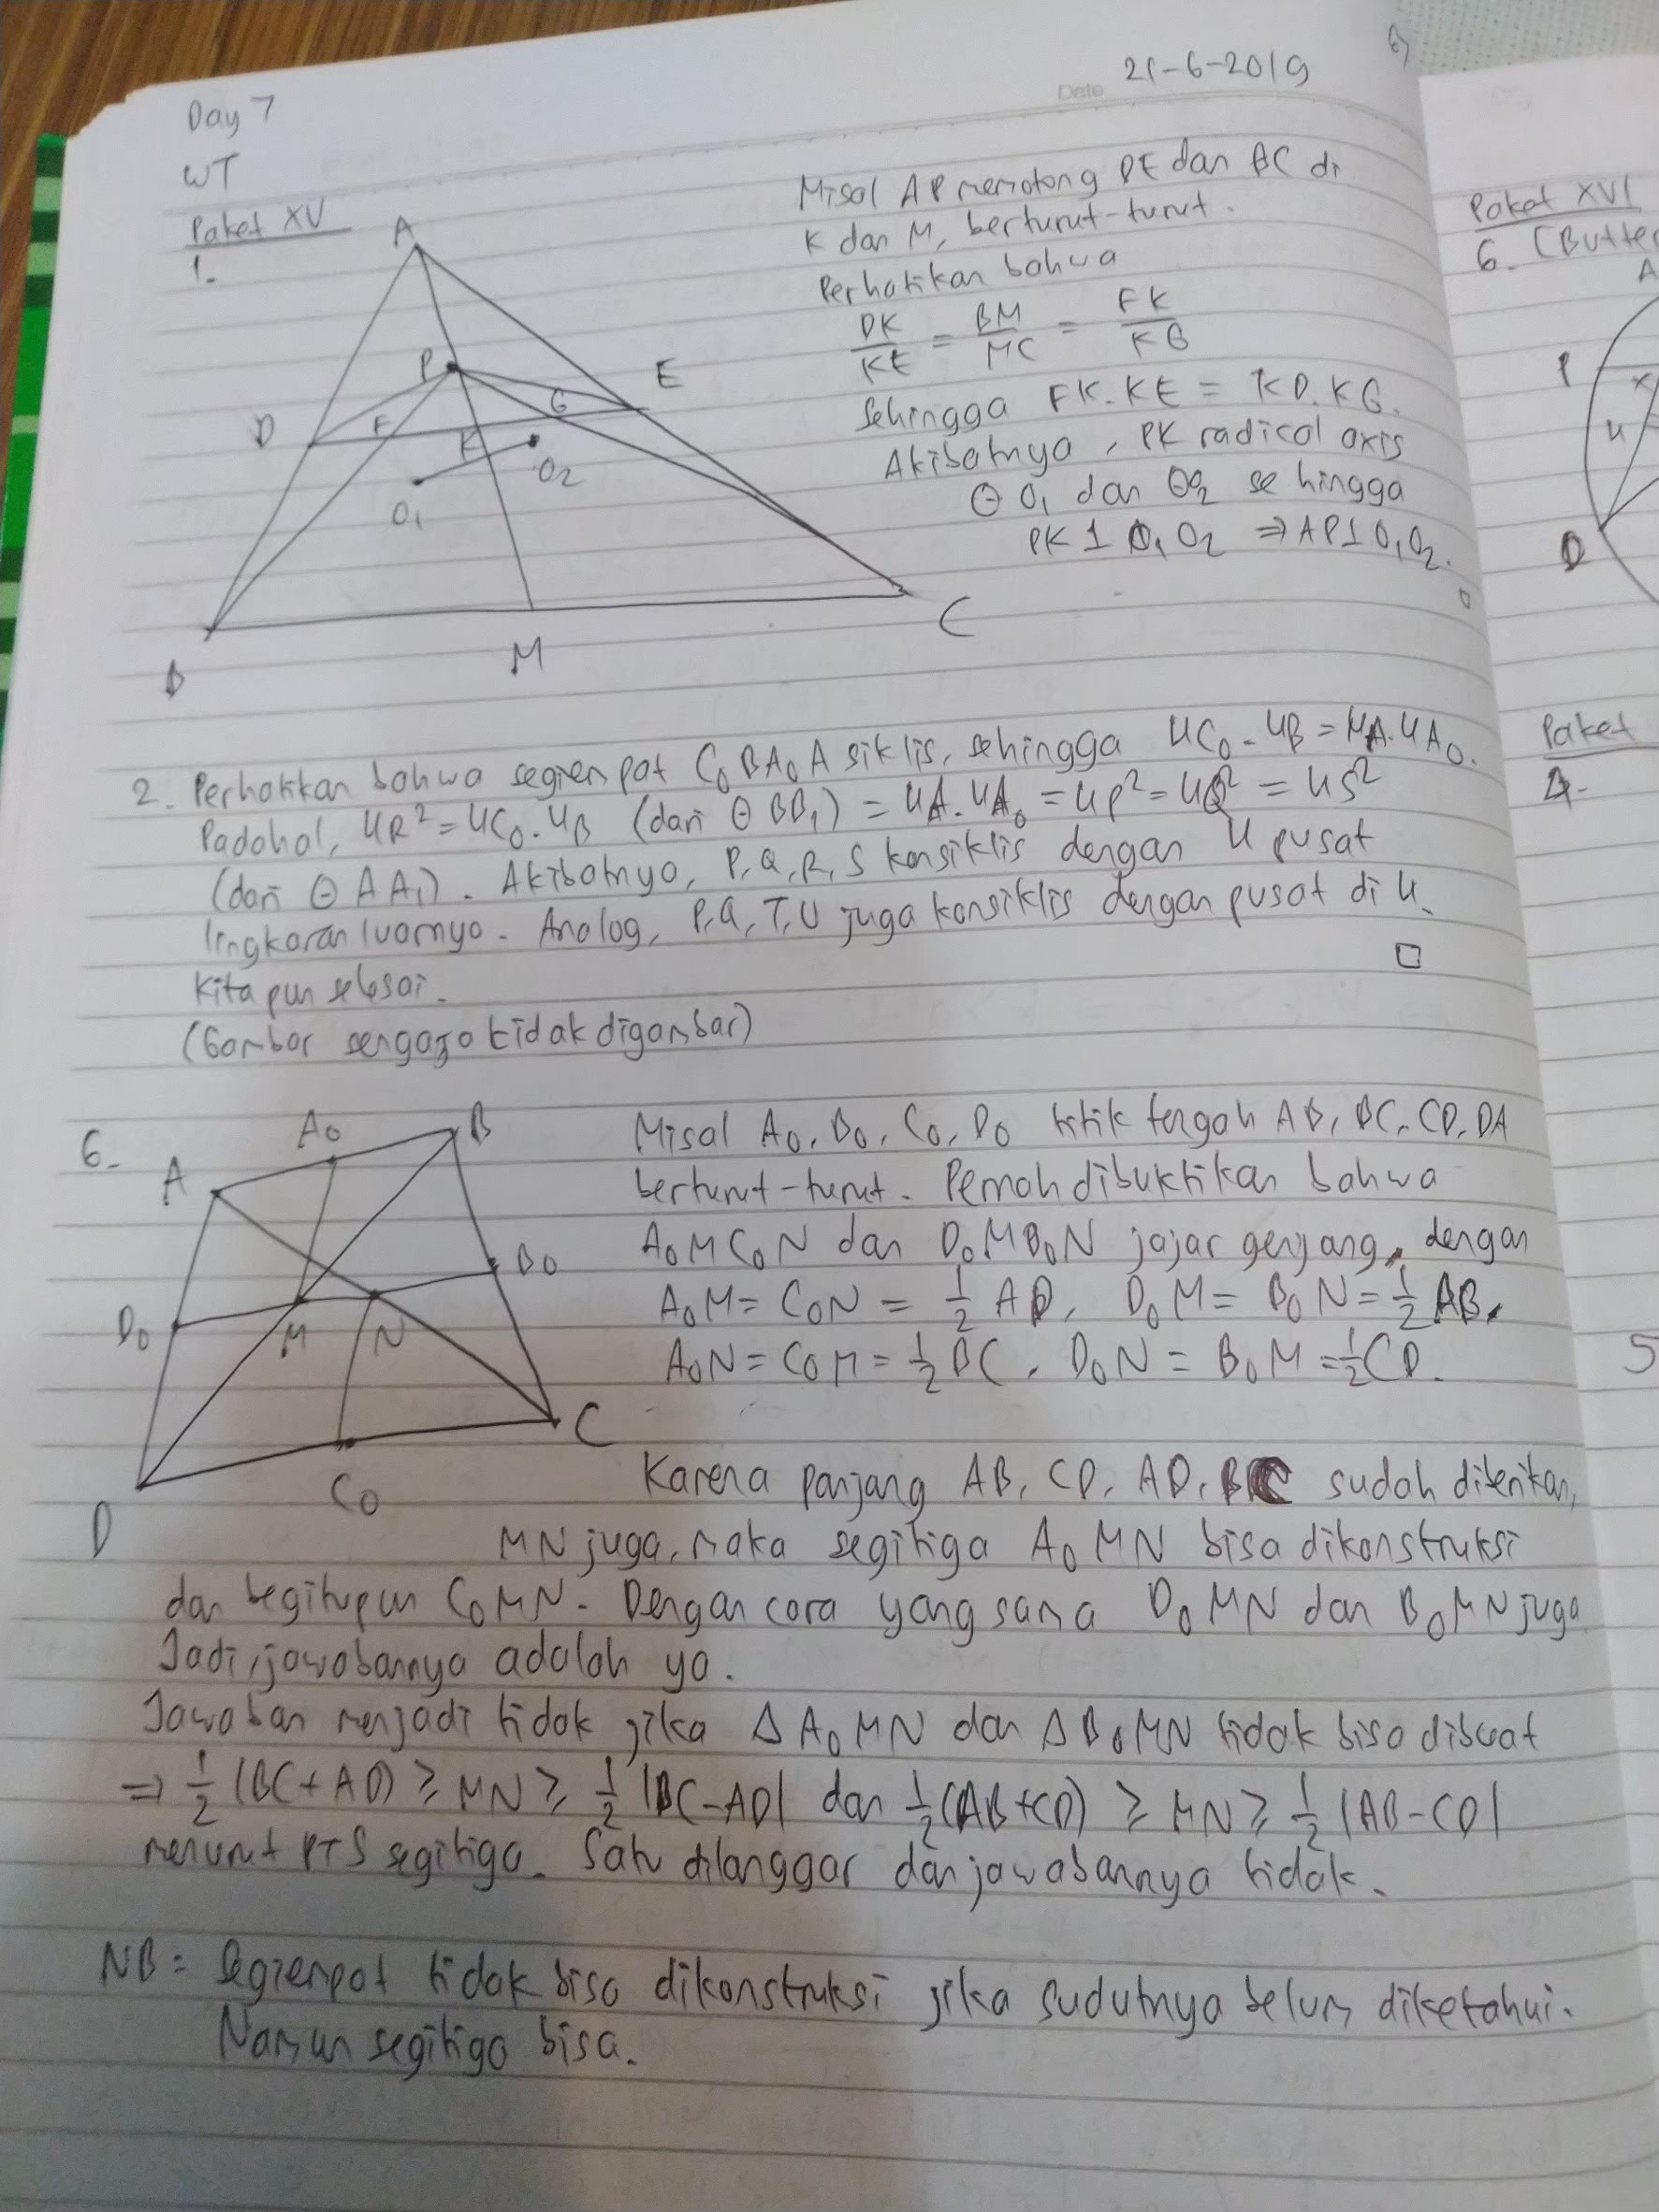 6)
Date 21-6-2019
Day 7
WT
Paket XV
1.
A
P
D
F
G
E
K
O₁
O₂
B
M
C
Misal AP memotong DE dan BC di
K dan M, berturut-turut.
Perhatikan bahwa
DK/KE = BM/MC = FK/KG
Sehingga FK.KE = KD.KG.
Akibatnya, PK radical axis
⊙O₁ dan ⊙O₂ sehingga
PK ⊥ O₁O₂ ⇒ AP ⊥ O₁O₂.
□
2. Perhatikan bahwa segiempat C₀BA₀A siklis, sehingga HC₀.HB = HA.HA₀.
Padahal, HR² = HC₀.HB (dari ⊙BB₁) = HA.HA₀ = HP² = HQ² = HS²
(dari ⊙AA₁). Akibatnya, P,Q,R,S konsiklis dengan H pusat
lingkaran luarnya. Analog, P,Q,T,U juga konsiklis dengan pusat di H.
Kita pun selesai.
□
(Gambar sengaja tidak digambar)
6.
A
A₀
B
D₀
M
N
B₀
D
C₀
C
Misal A₀, B₀, C₀, D₀ titik tengah AB, BC, CD, DA
berturut-turut. Pernah dibuktikan bahwa
A₀MC₀N dan D₀MB₀N jajar genjang, dengan
A₀M = C₀N = ½ AD, D₀M = B₀N = ½ AB,
A₀N = C₀M = ½ BC, D₀N = B₀M = ½ CD.
Karena panjang AB, CD, AD, BC sudah diberikan,
MN juga, maka segitiga A₀MN bisa dikonstruksi
dan begitupun C₀MN. Dengan cara yang sama D₀MN dan B₀MN juga
Jadi, jawabannya adalah ya.
Jawaban menjadi tidak jika ΔA₀MN dan ΔB₀MN tidak bisa dibuat
⇒ ½ (BC+AD) ≥ MN ≥ ½ |BC-AD| dan ½ (AB+CD) ≥ MN ≥ ½ |AB-CD|
menurut PTS segitiga. Satu dilanggar dan jawabannya tidak.
NB = Segiempat tidak bisa dikonstruksi jika sudutnya belum diketahui.
Namun segitiga bisa.
Paket XVI
6. (Butter
A
P
X
U
D
Paket
5